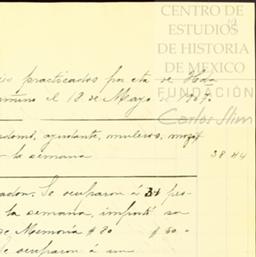 CENTRO DE
ESTUDIOS
DE HISTORIA
DE MEXICO
FUNDACIÓN
Carlos Slim
practicados por esta de Hda
el 18 de Mayo de 1907.
ayudante, muleros, mozo
la semana 38 44
Se ocuparon á 31
la semana, importó
de Memoria $80 $80
Se ocuparon á un